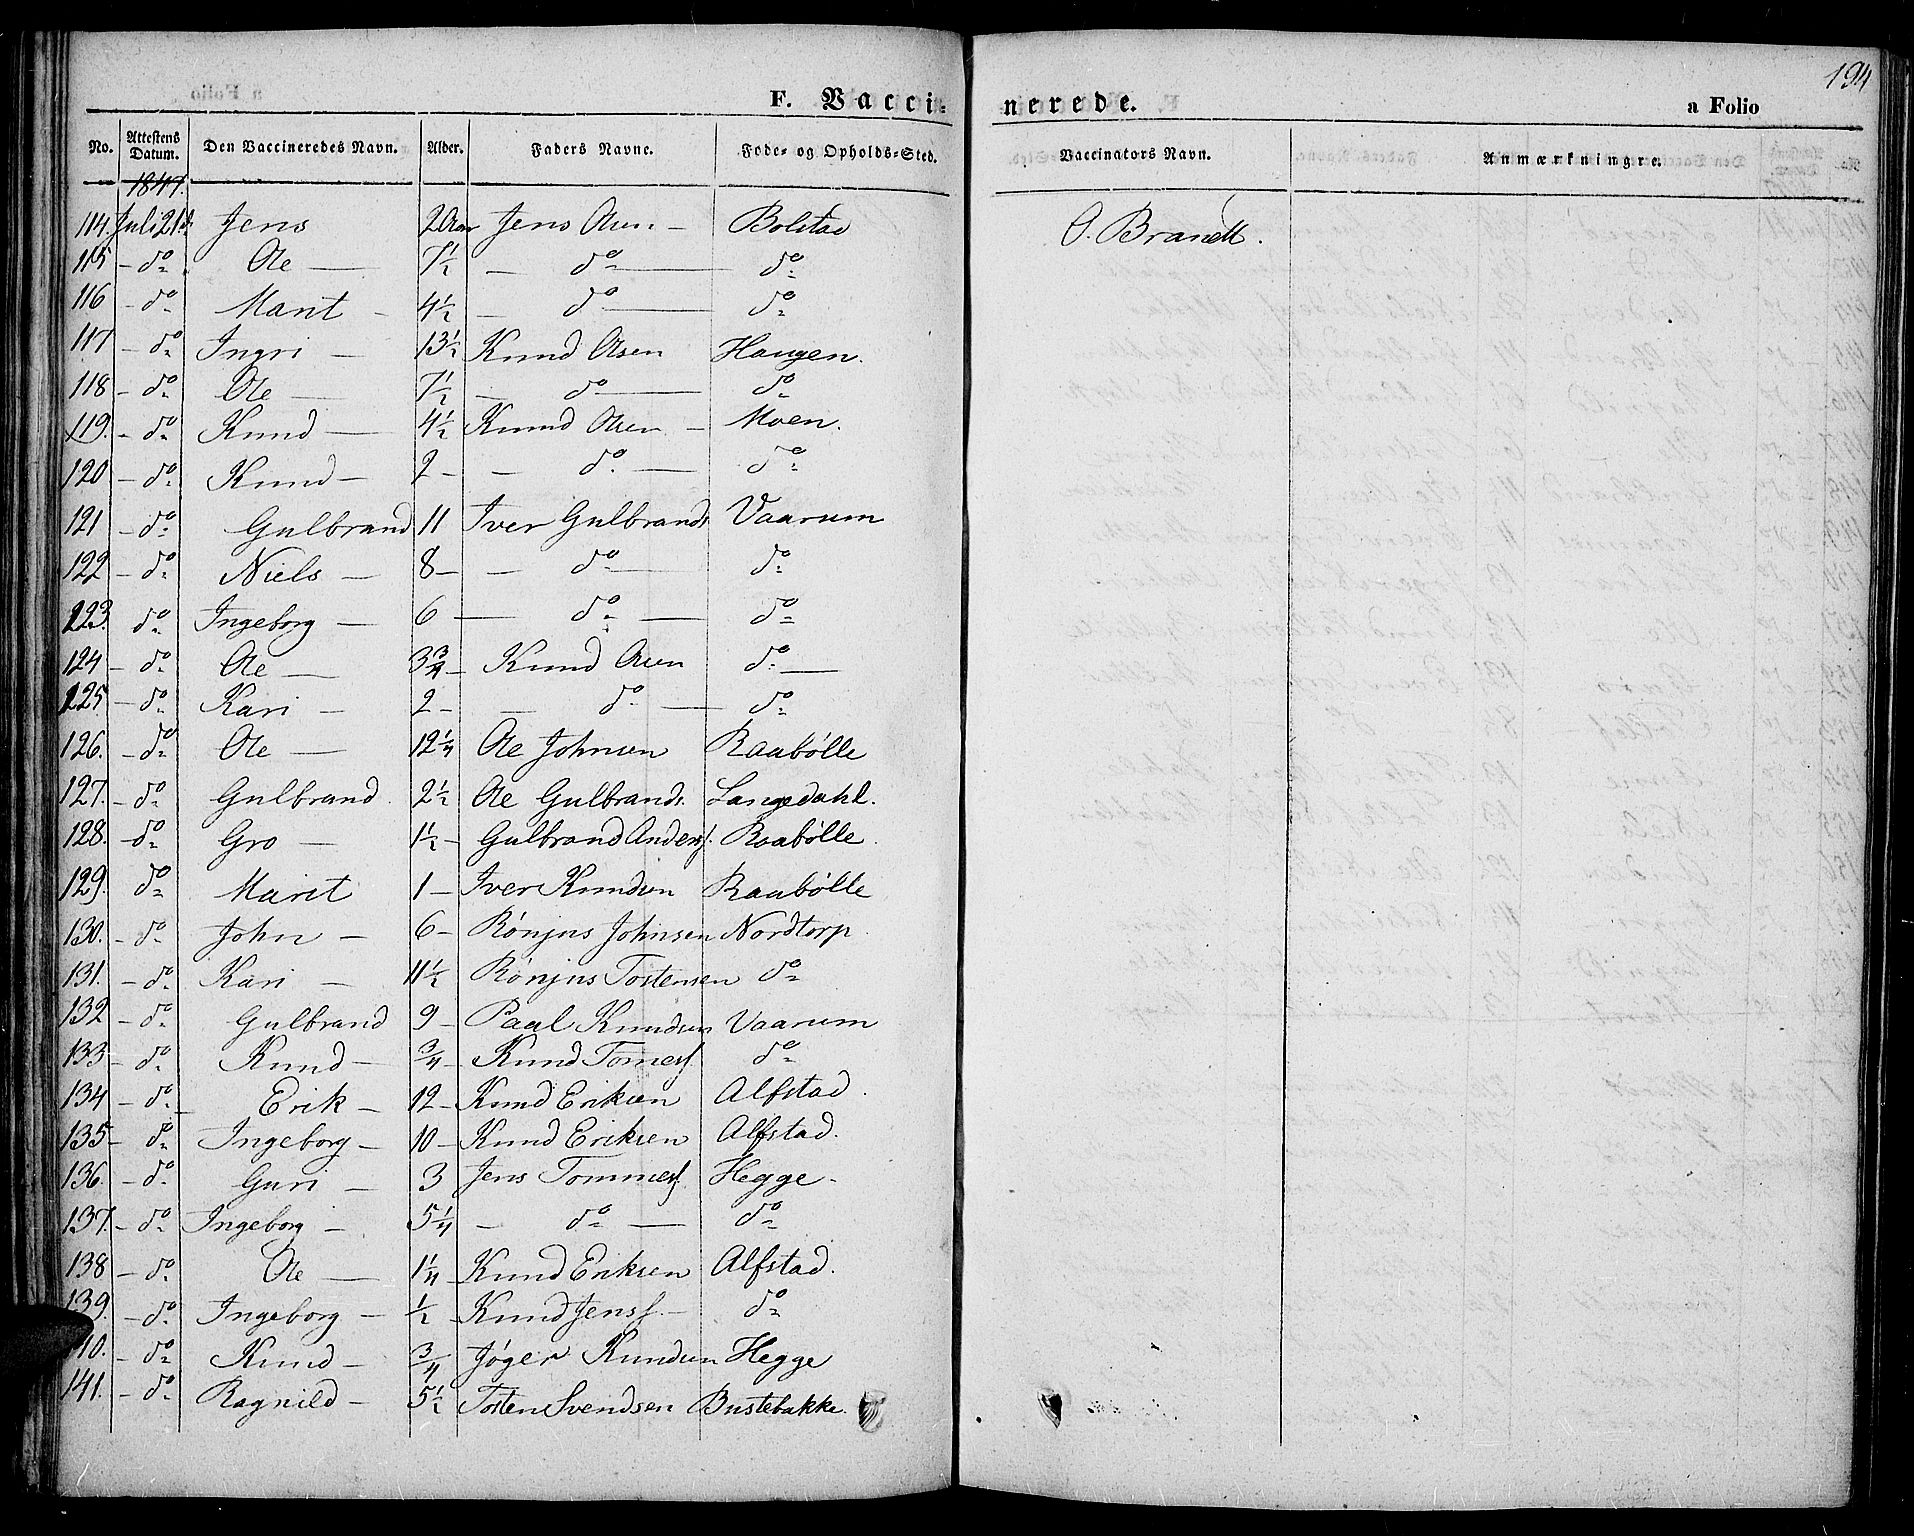 194
F. Vacci-nerede. a Folio
No. Attestens Datum. Den Vaccineredes Navn. Alder. Faders Navne. Føde- og Opholds-Sted. Vaccinators Navn. Anmærkningre.
1847.
114. Juli 21d Jens 2 Aar Jens Olsen - Bolstad O. Brandt.
115 - do Ole - 7½ - do - do
116 - do Marit - 4½ - do - do
117 - do Ingri - 13½ Knud Olsen Haugen.
118 - do Ole - 7½ - do - do
119. - do Knud - 4½ Knud Olsen - Moen.
120 - do Knud - 2 - - do - do
121 - do Gulbrand 11 Iver Gulbrands Vaarum
122 - do Niels - 8 - - do - do
123. do Ingeborg - 6 - do - do
124 - do Ole - 3¾ - Knud Olsen do -
125 - do Kari - 2 - - do - do
126. - do Ole - 12¼ Ole Johnsen Raabølle
127. - do Gulbrand 2½ Ole Gulbrands. Langedahl.
128. - do Gro - 1½ - Gulbrand Anders. Raabølle.
129. do Marit 1 - Iver Knudsen Raabølle
130. - do John - 6 - Rønjus Johnsen Nordtorp.
131. - do Kari - 11½ Rønjus Tostensen do
132 - do Gulbrand 9 - Paal Knudsen Vaarum
133 - do Knud - ¾ - Knud Tomesf do
134 - do - Erik - 12 - Knud Eriksen Alfstad.
135 - do Ingeborg - 10 - Knud Eriksen Alfstad.
136. - do Guri - 3 Jens Tommesf. Hegge.
137. - do Ingeborg - 5¼ - do - do
138 - do Ole - 1¼ - Knud Eriksen Alfstad.
139. - do Ingeborg - ½ - Knud Jensf. - do
140. - do Knud - ¾ Jøger Knudsen Hegge
141. - do Ragnild - 5½ Tosten Svendsen Bustebakke.